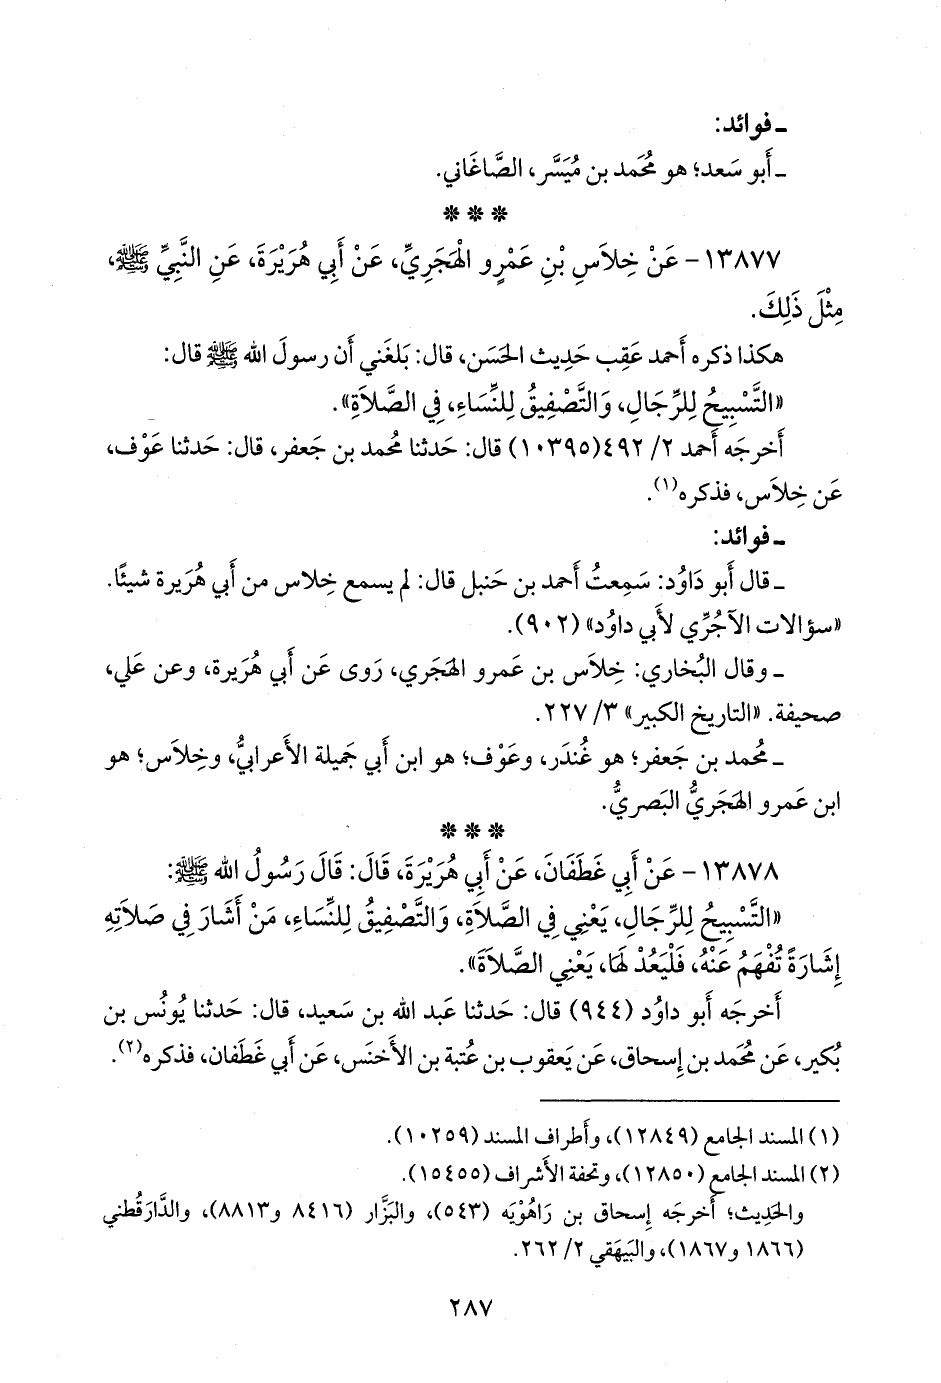 ـ فوائد:
ـ أَبو سَعد؛ هو مُحَمد بن مُيَسَّر، الصَّاغَاني.
❊ ❊ ❊
١٣٨٧٧ - عَنْ خِلاَسِ بْنِ عَمْرٍو الْهَجَرِيِّ، عَنْ أَبِي هُرَيْرَةَ، عَنِ النَّبِيِّ ﷺ،
مِثْلَ ذَلِكَ.
هكذا ذكره أَحمد عَقِب حَدِيث الحَسَن، قال: بَلغَني أَن رسولَ الله ﷺ قال:
«التَّسْبِيحُ لِلرِّجَالِ، وَالتَّصْفِيقُ لِلنِّسَاءِ، فِي الصَّلاَةِ».
أَخرجَه أَحمد ٢/ ٤٩٢(١٠٣٩٥) قال: حَدثنا مُحمد بن جَعفر، قال: حَدثنا عَوْف،
عَن خِلاَس، فذكره(١).
ـ فوائد:
ـ قال أَبو دَاوُد: سَمِعتُ أَحمد بن حَنبل قال: لم يسمع خِلاس من أَبي هُرَيرة شيئًا.
«سؤالات الآجُرِّي لأَبي داوُد» (٩٠٢).
ـ وقال البُخاري: خِلاَس بن عَمرو الهَجَري، رَوى عَن أَبي هُرَيرة، وعن عَلي،
صحيفة. «التاريخ الكبير» ٣/ ٢٢٧.
ـ مُحمد بن جَعفر؛ هو غُندَر، وعَوْف؛ هو ابن أَبي جَميلة الأَعرابيُّ، وخِلاَس؛ هو
ابن عَمرو الهَجَريُّ البَصريُّ.
❊ ❊ ❊
١٣٨٧٨ - عَنْ أَبِي غَطَفَانَ، عَنْ أَبِي هُرَيْرَةَ، قَالَ: قَالَ رَسُولُ الله ﷺ:
«التَّسْبِيحُ لِلرِّجَالِ، يَعْنِي فِي الصَّلاَةِ، وَالتَّصْفِيقُ لِلنِّسَاءِ، مَنْ أَشَارَ فِي صَلاَتِهِ
إِشَارَةً تُفْهَمُ عَنْهُ، فَلْيَعُدْ لَهَا، يَعْنِي الصَّلاَةَ».
أَخرجَه أَبو داوُد (٩٤٤) قال: حَدثنا عَبد الله بن سَعيد، قال: حَدثنا يُونُس بن
بُكير، عَن مُحَمد بن إِسحاق، عَن يَعقوب بن عُتبة بن الأَخنَس، عَن أَبي غَطَفان، فذكره(٢).
(١) المسند الجامع (١٢٨٤٩)، وأَطراف المسند (١٠٢٥٩).
(٢) المسند الجامع (١٢٨٥٠)، وتحفة الأَشراف (١٥٤٥٥).
والحَدِيث؛ أَخرجَه إِسحاق بن رَاهُوْيَه (٥٤٣)، والبَزَّار (٨٤١٦ و٨٨١٣)، والدَّارَقُطني
(١٨٦٦ و١٨٦٧)، والبَيهَقي ٢/ ٢٦٢.
٢٨٧